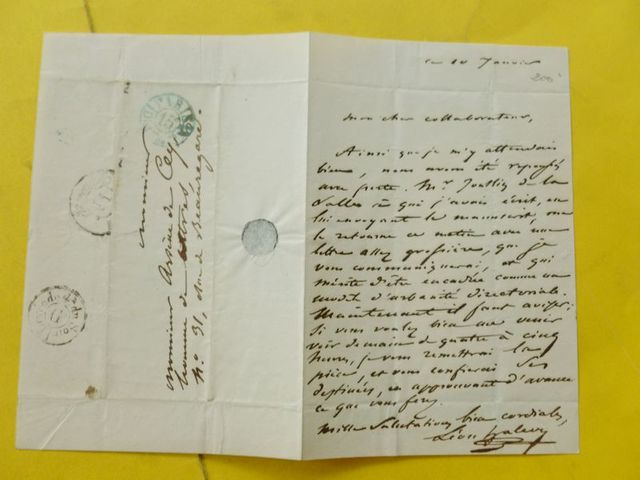 ce 10 Janvier
200
mon cher collaborateur,
Ainsi que je m'y attendais
bien, nous avons été repoussés
avec perte. Mr de la
Salle à qui j'avais écrit, en
lui envoyant le manuscrit, me
le retourne ce matin avec une
lettre assez grossière, que je
vous communiquerai, et qui
mérite d'être encadrée comme un
modèle d'urbanité directoriale.
Maintenant il faut aviser.
Si vous voulez bien me venir
voir demain de quatre à cinq
heures, je vous remettrai la
pièce, et vous confierai ses
destinées, en approuvant d'avance
ce que vous ferez.
Mille salutations bien cordiales,
Léon Halevy
Monsieur
Monsieur Arsène de Cey
homme de lettres,
No 31, rue de Beauregard.
PARIS